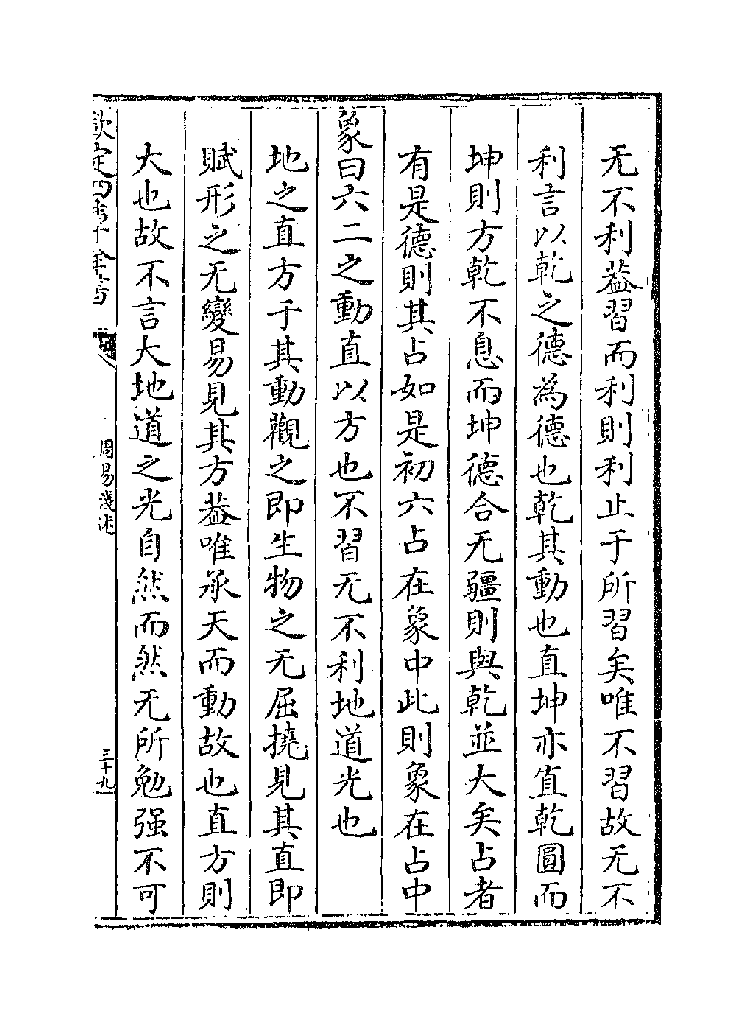 无不利葢習而利則利止于所習矣唯不習故无不
利言以乾之德為德也乾其動也直坤亦直乾圓而
坤則方乾不息而坤德合无疆則與乾並大矣占者
有是德則其占如是初六占在象中此則象在占中
象曰六二之動直以方也不習无不利地道光也
地之直方于其動觀之即生物之无屈撓見其直即
賦形之无變易見其方葢唯承天而動故也直方則
大也故不言大地道之光自然而然无所勉强不可
欽定四庫全書
周易淺述
三十九